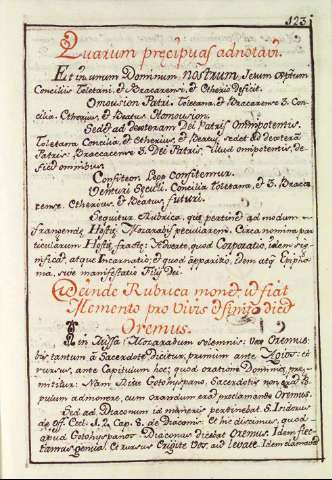 123
Quarum precipuas adnotavi.
Et in unum Dominum nostrum Jesum
Conciliis Toletani, & Bracarensi, & Etherio deficit.
Omousion Patri. Toletana, & Bracarense 3. Con-
cilia. Etherius, & Beatus Homousion.
Sedet ad dexteram Dei Patris Omnipotentis.
Toletana Concilia, & Etherius, & Beatus sedet ad dexteram
Patris: Braccarense 3. Dei Patris, illud omnipotentis, de-
ficit omnibus.
Confiteor Lege Confitemur.
Venturi seculi. Concilia Toletana, & 3. Braca-
rense. Etherius, & Beatus futuri.
Sequitur Rubrica, quae pertinet ad modum
frangende Hostie Mozarabis peculiarem. Circa nomina par-
ticularum Hostie fracte: Adverte, quod Corporatio, idem signi-
ficat, atque Incarnatio; & quod apparitio, idem atque Epipha-
nia, sive manifestatio Filii Dei.
Deinde Rubrica monet, ut fiat
Memento pro Vivis & dicet
Oremus.
In Missa Mozarabum solemni: Vox Oremus:
bis tantum à Sacerdote dicitur, primum ante Agios: et
rursus, ante Capitulum hoc; quod orationi Dominice pre-
mititur: Nam Ritu Gotohyspano, Sacerdotis non erat Po-
pulum admonere, cum orandum erat proclamante Oremus.
Sed ad Diaconum id muneris pertinebat. S. Isidorus
de Off. Eccl. l. 2. Cap. 8. de Diaconis: Et hic discimus, quod
apud Gotohyspanos Diaconus dicebat Oremus. Idem flec-
tamus genua. Et rursus Erigite Vos, aut levate. Idem clamabat